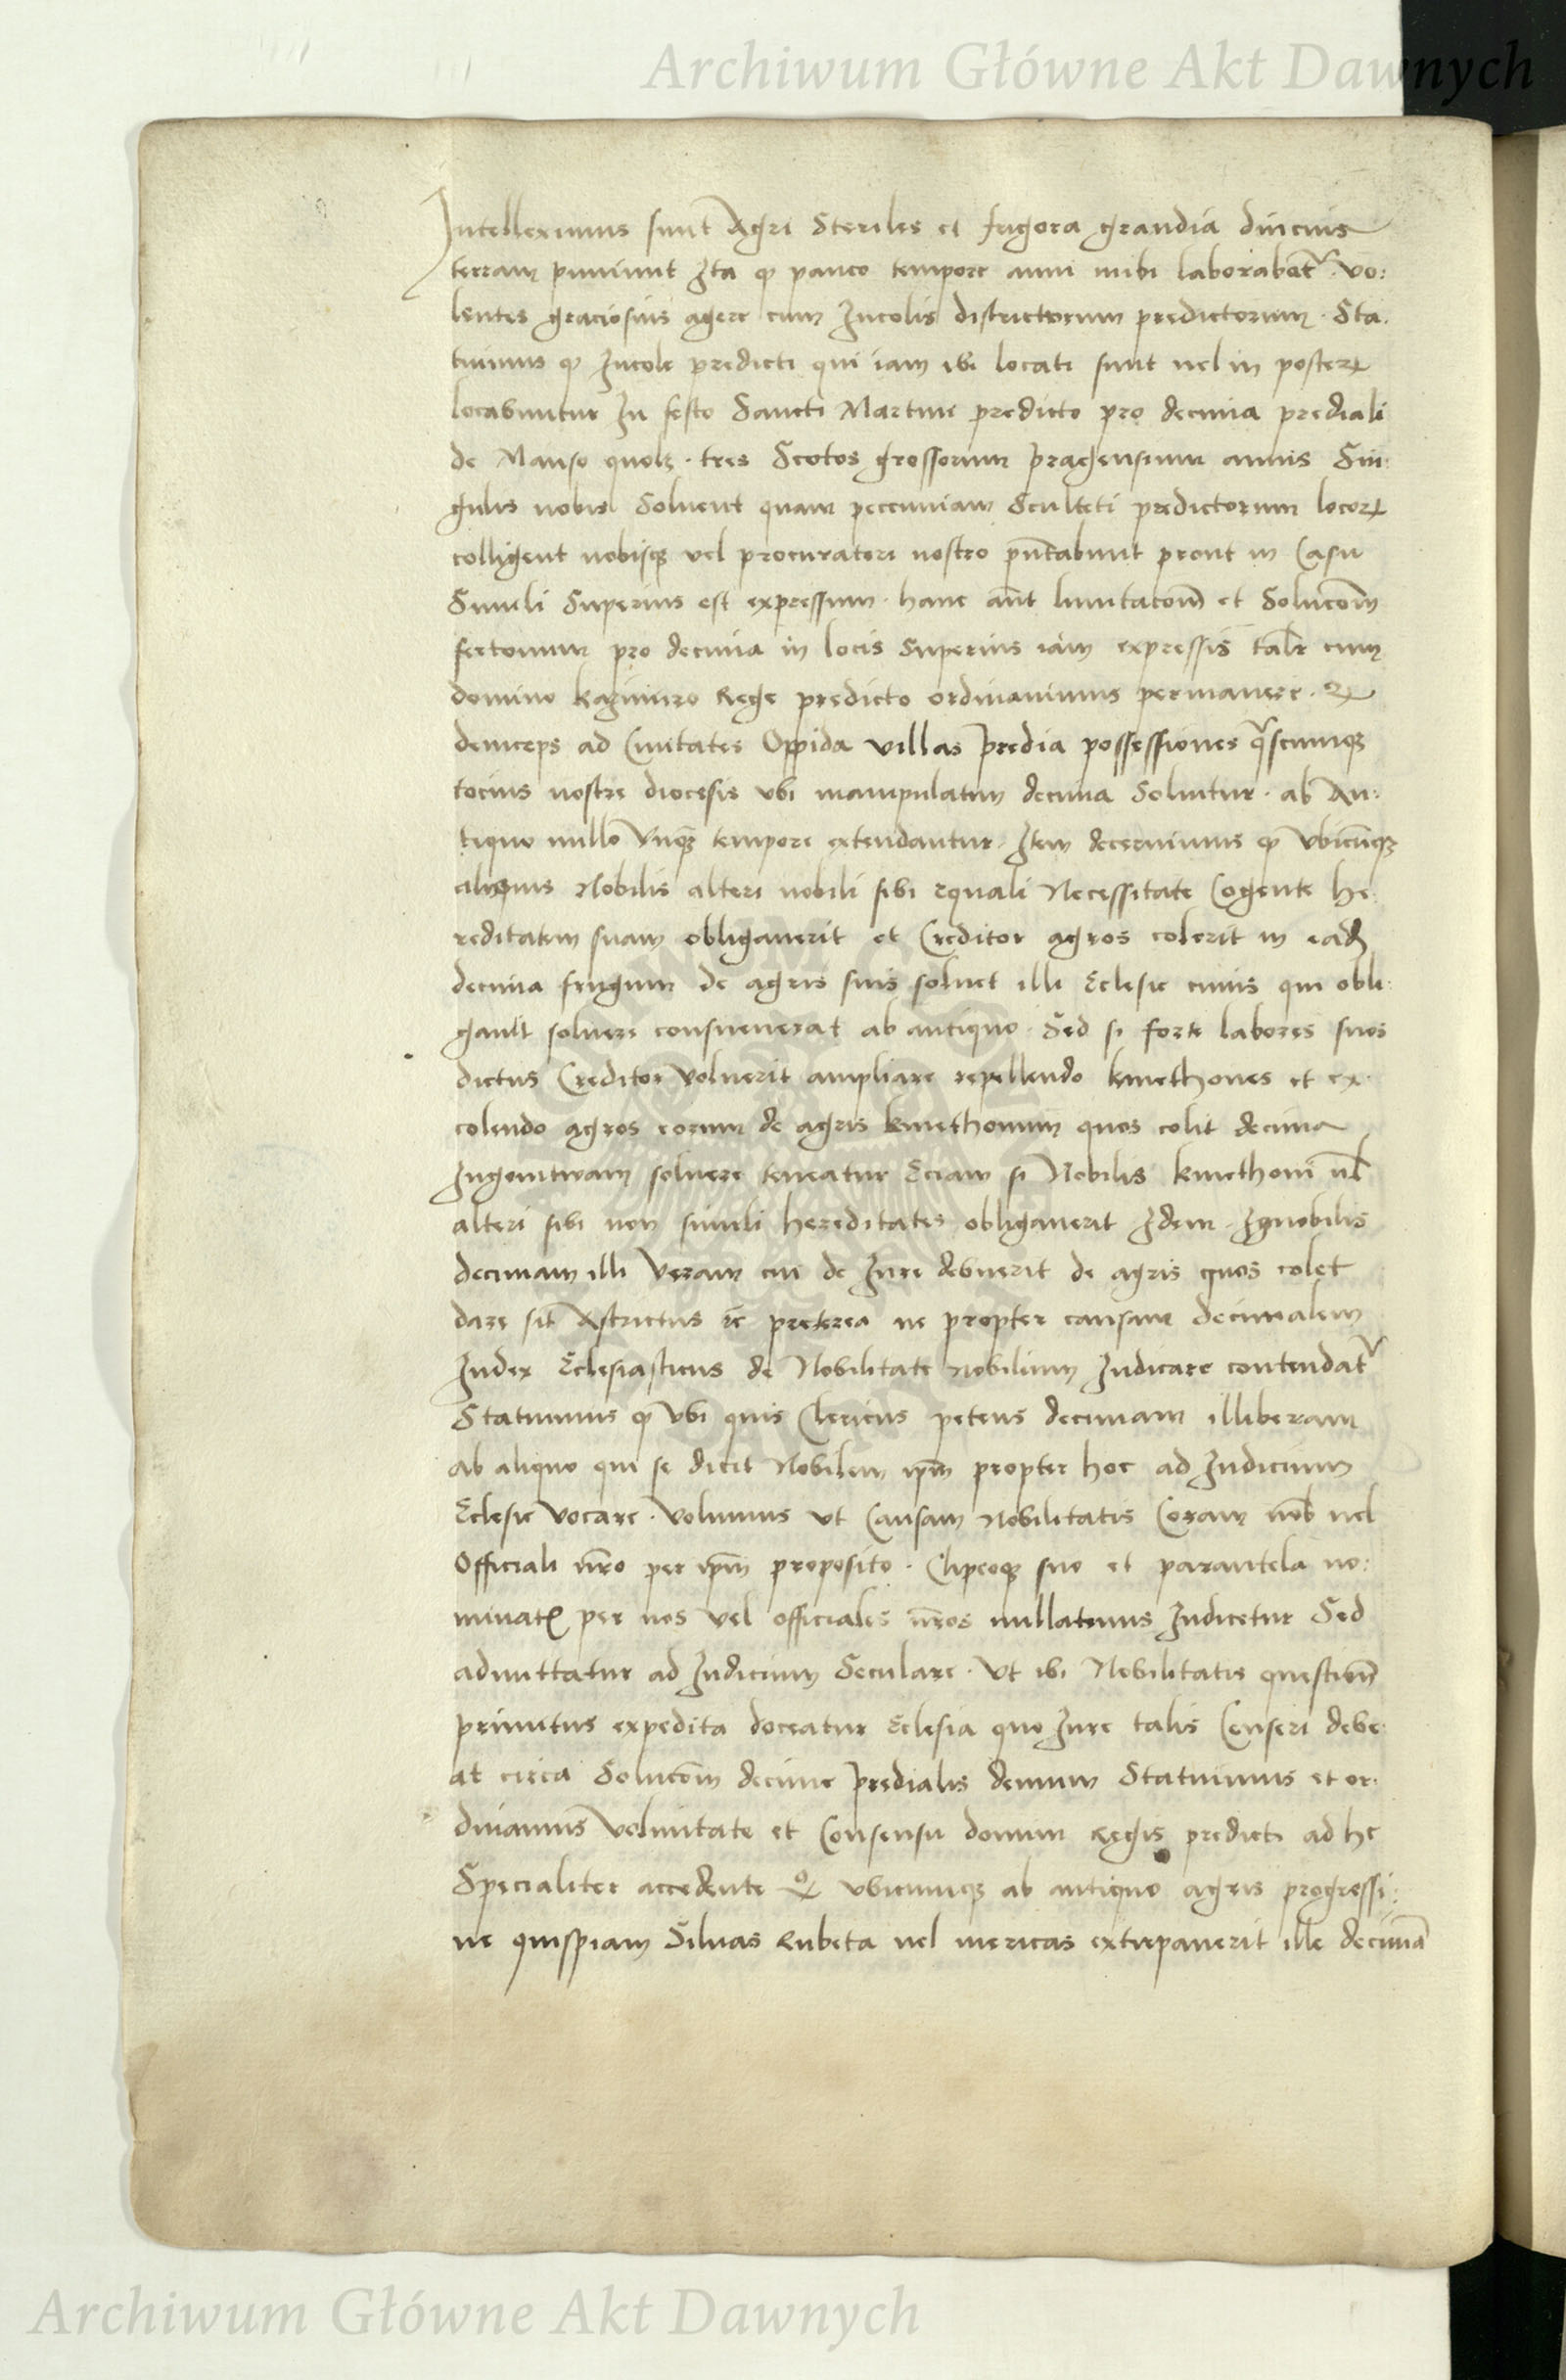 Archiwum Główne Akt Dawnych
Intelleximus sunt Agri Steriles et frigora grandia diucius
terram puniunt Ita ꝙ pauco tempore anni inibi laborabat᷑ · vo:
lentes graciosius agere cum Incolis districtorum predictorum · Sta.
tuimus ꝙ Incole predicti qui iam ibi locati sunt uel in posteꝝ
locabuntur In festo Sancti Martini predicto pro decima prediali
de Manso quolꝫ · tres Scotos grossorum pragensium annis Sin:
gulis nobis Soluent quam peccuniam Sculteti predictorum locoꝝ
colligent nobisqꝫ vel procuratori nostro pñtabunt prout in Casu
Simili Superius est expressum · hanc aūt limitacōm et Solucōm
fertonum pro decima in locis Superius iam expressis talr̄ cum
domino Kazimiro Rege predicto ordinauimus permanere · ꝙ
deinceps ad Ciuitates Oppida villas predia possessiones qᵃscumqꝫ
tocius nostre diocesis vbi manipulatim decima Soluitur · ab An:
tiquo nullo vnqꝫ tempore extendantur · Item decernimus ꝙ vbicūqꝫ
aliquis Nobilis alteri nobili sibi equali Necessitate Cogente he:
reditatem suam obligauerit et Creditor agros colerit in eadē
decima frugum de agris suis soluet illi Eclesie cuius qui obli:
gauit soluere consueuerat ab antiquo · Sed si forte labores suos
dictus Creditor voluerit ampliare repellendo kmethones et ex.
colendo agros eorum de agris kmethonum quos colit decima
Ingonitwam soluere teneatur Eciam si Nobilis kmethoni ul̄
alteri sibi non simili hereditates obligauerit Idem · Ignobilis
decimam illi veram cui de Iure debuerit de agris quos colet
dare sit Astrictus preterea ne propter causam decimalem
Iudex Eclesiasticus de Nobilitate Nobilium Iudicare contendat᷑
Statuimus ꝙ vbi quis Clericus petens decimam illiberam
ab aliquo qui se dicit Nobilem ip̄m propter hoc ad Iudicium
Eclesie vocare · volumus vt Causam Nobilitatis Coram nob̄ uel
Officiali nr̄o per ip̄m proposito · Clipeoqꝫ suo et parantela no:
minatꝭ per nos vel officiales nr̄os nullatenus Iudicetur Sed
admittatur ad Iudicium Seculare · vt ibi Nobilitatis questiōe
primitus expedita doceatur Eclesia quo Iure talis Censeri debe:
at circa Solucōm decime predialis demum Statuimus et or:
dinamus voluntate et Consensu domini Regis predicti ad hc
Specialiter accedente ꝙ vbicumqꝫ ab antiquo agris progressi:
ne quispiam Siluas Rubeta uel mericas extirpauerit ille decimā
Archiwum Główne Akt Dawnych